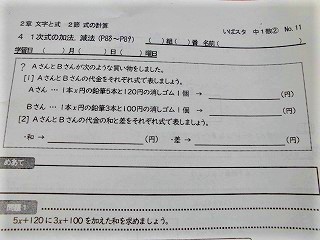 2章 文字と式　2節 式の計算　いばスタ 中1数② No.11
4 1次式の加法、減法 (P88～P89)　(　)組 (　)番 名前 (
学習日 (　)月 (　)日 (　)曜日
? AさんとBさんが次のような買い物をしました。
[1] AさんとBさんの代金をそれぞれ式で表しましょう。
Aさん … 1本x円の鉛筆5本と120円の消しゴム1個 → (円)
Bさん … 1本x円の鉛筆3本と100円の消しゴム1個 → (円)
[2] AさんとBさんの代金の和と差をそれぞれ式で表しましょう。
・和 → (円)　・差 → (円)
めあて
問題1
5x+120 に 3x+100 を加えた和を求めましょう。